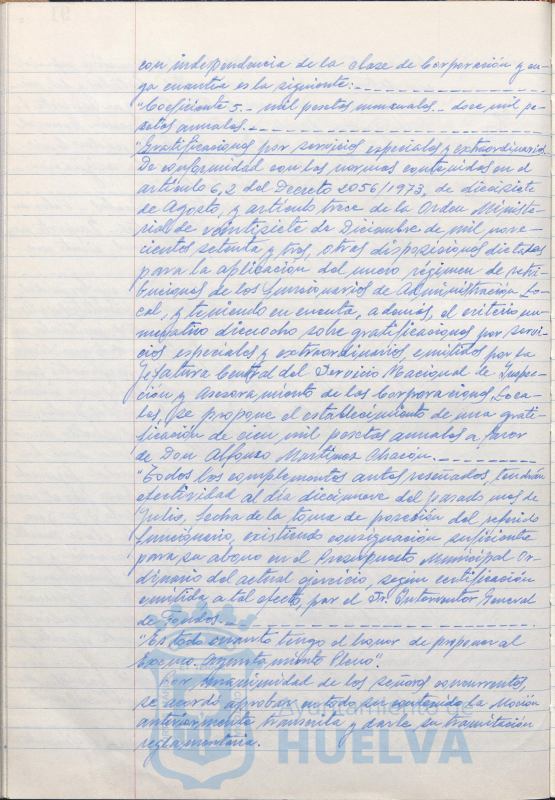 con independencia de la clase de Corporación y cu-
ya cuantía es la siguiente:
"Coeficiente 5.- mil pesetas mensuales.- doce mil pe-
setas anuales.
"Gratificaciones por servicios especiales y extraordinarios
De conformidad con las normas contenidas en el
artículo 6,2 del Decreto 2056/1973, de diecisiete
de Agosto, y artículo trece de la Orden Ministe-
rial de veintisiete de Diciembre de mil nove-
cientos setenta y tres, otras disposiciones dictadas
para la aplicación del nuevo régimen de retri-
buciones de los funcionarios de Administración Lo-
cal, y teniendo en cuenta, además, el criterio nu-
merativo dieciocho sobre gratificaciones por servi-
cios especiales y extraordinarios, emitidos por la
Jefatura Central del Servicio Nacional de Inspec-
ción y Asesoramiento de las Corporaciones Loca-
les, se propone el establecimiento de una grati-
ficación de cien mil pesetas anuales a favor
de Don Alfonso Martínez Chacón.
"Todos los complementos antes reseñados, tendrán
efectividad al día diecinueve del pasado mes de
Julio, fecha de la toma de posesión del referido
funcionario, existiendo consignación suficiente
para su abono en el Presupuesto Municipal Or-
dinario del actual ejercicio, según certificación
emitida a tal efecto, por el Sr. Interventor General
de Fondos.
"Es todo cuanto tengo el honor de proponer al
Excmo. Ayuntamiento Pleno".
Por unanimidad de los señores concurrentes
se acordó aprobar en todo su contenido la Moción
anteriormente transcrita y darle su tramitación
reglamentaria.
Ayuntamiento de
HUELVA